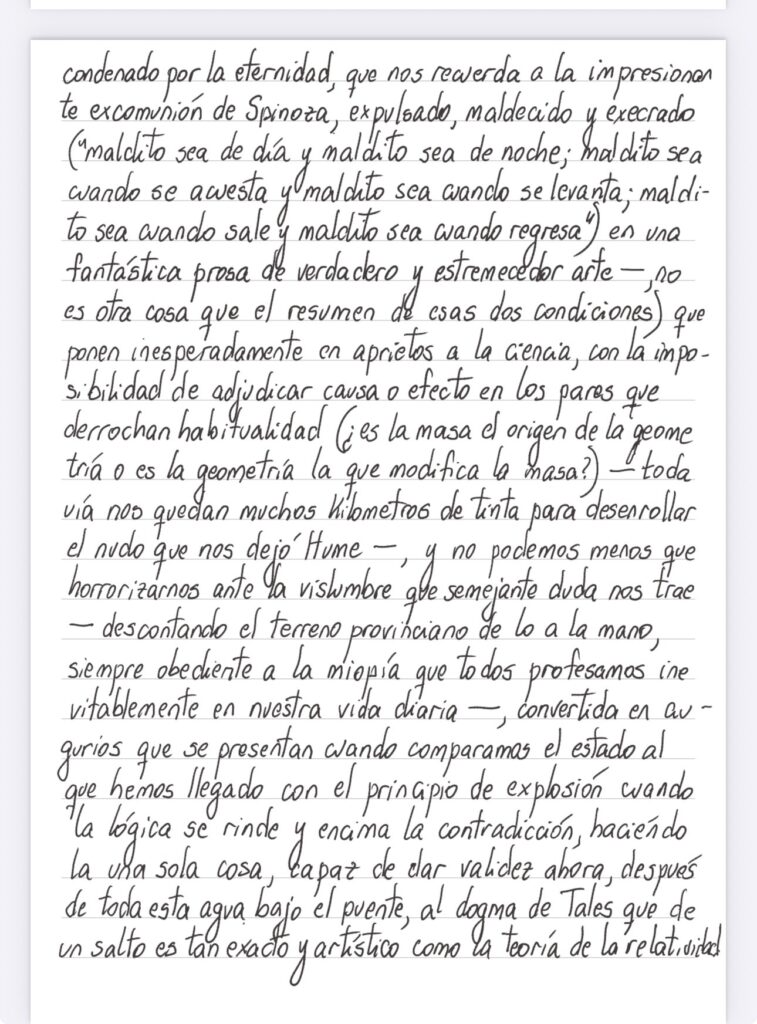 condenado por la eternidad, que nos recuerda a la impresionan
te excomunión de Spinoza, expulsado, maldecido y execrado
("maldito sea de día y maldito sea de noche; maldito sea
cuando se acuesta y maldito sea cuando se levanta; maldi-
to sea cuando sale y maldito sea cuando regresa") en una
fantástica prosa de verdadero y estremecedor arte —, no
es otra cosa que el resumen de esas dos condiciones) que
ponen inesperadamente en aprietos a la ciencia, con la impo-
sibilidad de adjudicar causa o efecto en los pares que
derrochan habitualidad (¿es la masa el origen de la geome
tría o es la geometría la que modifica la masa?) — toda
vía nos quedan muchos kilometros de tinta para desenrollar
el nudo que nos dejó Hume —, y no podemos menos que
horrorizarnos ante la vislumbre que semejante duda nos trae
— descontando el terreno provinciano de lo a la mano,
siempre obediente a la miopía que todos profesamos ine
vitablemente en nuestra vida diaria —, convertida en au-
gurios que se presentan cuando comparamos el estado al
que hemos llegado con el principio de explosión cuando
la lógica se rinde y encima la contradicción, haciendo
la una sola cosa, capaz de dar validez ahora, después
de toda esta agua bajo el puente, al dogma de Tales que de
un salto es tan exacto y artístico como la teoría de la relatividad